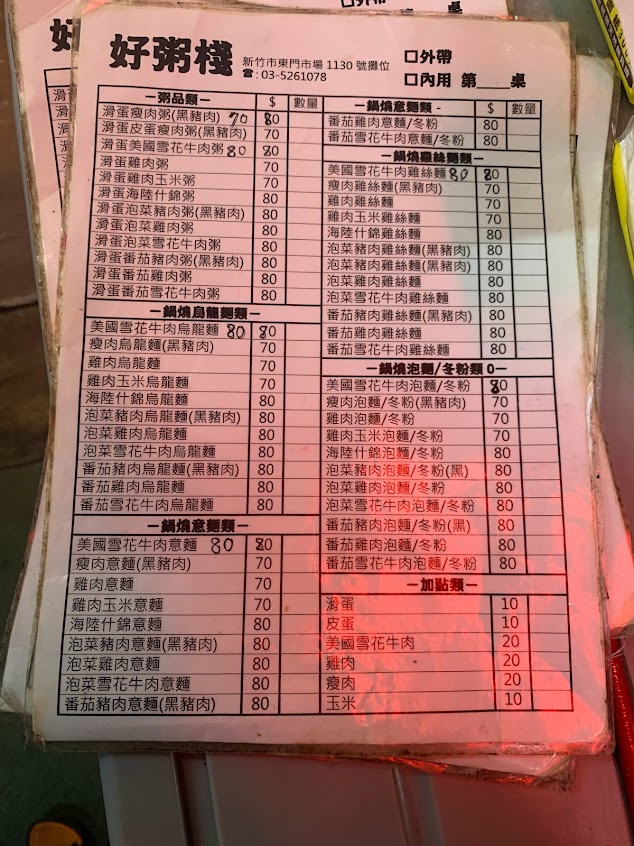 好粥棧
新竹市東門市場 1130 號攤位
☎:03-5261078
□外帶
□內用 第___桌
—粥品類— $ 數量
滑蛋瘦肉粥(黑豬肉) 70 80
滑蛋皮蛋瘦肉粥(黑豬肉) 70
滑蛋美國雪花牛肉粥 80 80
滑蛋雞肉粥 70
滑蛋雞肉玉米粥 70
滑蛋海陸什錦粥 80
滑蛋泡菜豬肉粥(黑豬肉) 80
滑蛋泡菜雞肉粥 80
滑蛋泡菜雪花牛肉粥 80
滑蛋番茄豬肉粥(黑豬肉) 80
滑蛋番茄雞肉粥 80
滑蛋番茄雪花牛肉粥 80
—鍋燒烏龍麵類—
美國雪花牛肉烏龍麵 80 80
瘦肉烏龍麵(黑豬肉) 70
雞肉烏龍麵 70
雞肉玉米烏龍麵 70
海陸什錦烏龍麵 80
泡菜豬肉烏龍麵(黑豬肉) 80
泡菜雞肉烏龍麵 80
泡菜雪花牛肉烏龍麵 80
番茄豬肉烏龍麵(黑豬肉) 80
番茄雞肉烏龍麵 80
番茄雪花牛肉烏龍麵 80
—鍋燒意麵類—
美國雪花牛肉意麵 80 80
瘦肉意麵(黑豬肉) 70
雞肉意麵 70
雞肉玉米意麵 70
海陸什錦意麵 80
泡菜豬肉意麵(黑豬肉) 80
泡菜雞肉意麵 80
泡菜雪花牛肉意麵 80
番茄豬肉意麵(黑豬肉) 80
—鍋燒意麵類- $ 數量
番茄雞肉意麵/冬粉 80
番茄雪花牛肉意麵/冬粉 80
—鍋燒雞絲麵類—
美國雪花牛肉雞絲麵 80 80
瘦肉雞絲麵(黑豬肉) 70
雞肉雞絲麵 70
雞肉玉米雞絲麵 70
海陸什錦雞絲麵 80
泡菜豬肉雞絲麵(黑豬肉) 80
泡菜豬肉雞絲麵(黑豬肉) 80
泡菜雞肉雞絲麵 80
泡菜雪花牛肉雞絲麵 80
番茄豬肉雞絲麵(黑豬肉) 80
番茄雞肉雞絲麵 80
番茄雪花牛肉雞絲麵 80
—鍋燒泡麵/冬粉類 0—
美國雪花牛肉泡麵/冬粉 80
瘦肉泡麵/冬粉(黑豬肉) 70
雞肉泡麵/冬粉 70
雞肉玉米泡麵/冬粉 70
海陸什錦泡麵/冬粉 80
泡菜豬肉泡麵/冬粉(黑) 80
泡菜雞肉泡麵/冬粉 80
泡菜雪花牛肉泡麵/冬粉 80
番茄豬肉泡麵/冬粉(黑) 80
番茄雞肉泡麵/冬粉 80
番茄雪花牛肉泡麵/冬粉 80
—加點類—
滑蛋 10
皮蛋 10
美國雪花牛肉 20
雞肉 20
瘦肉 20
玉米 10